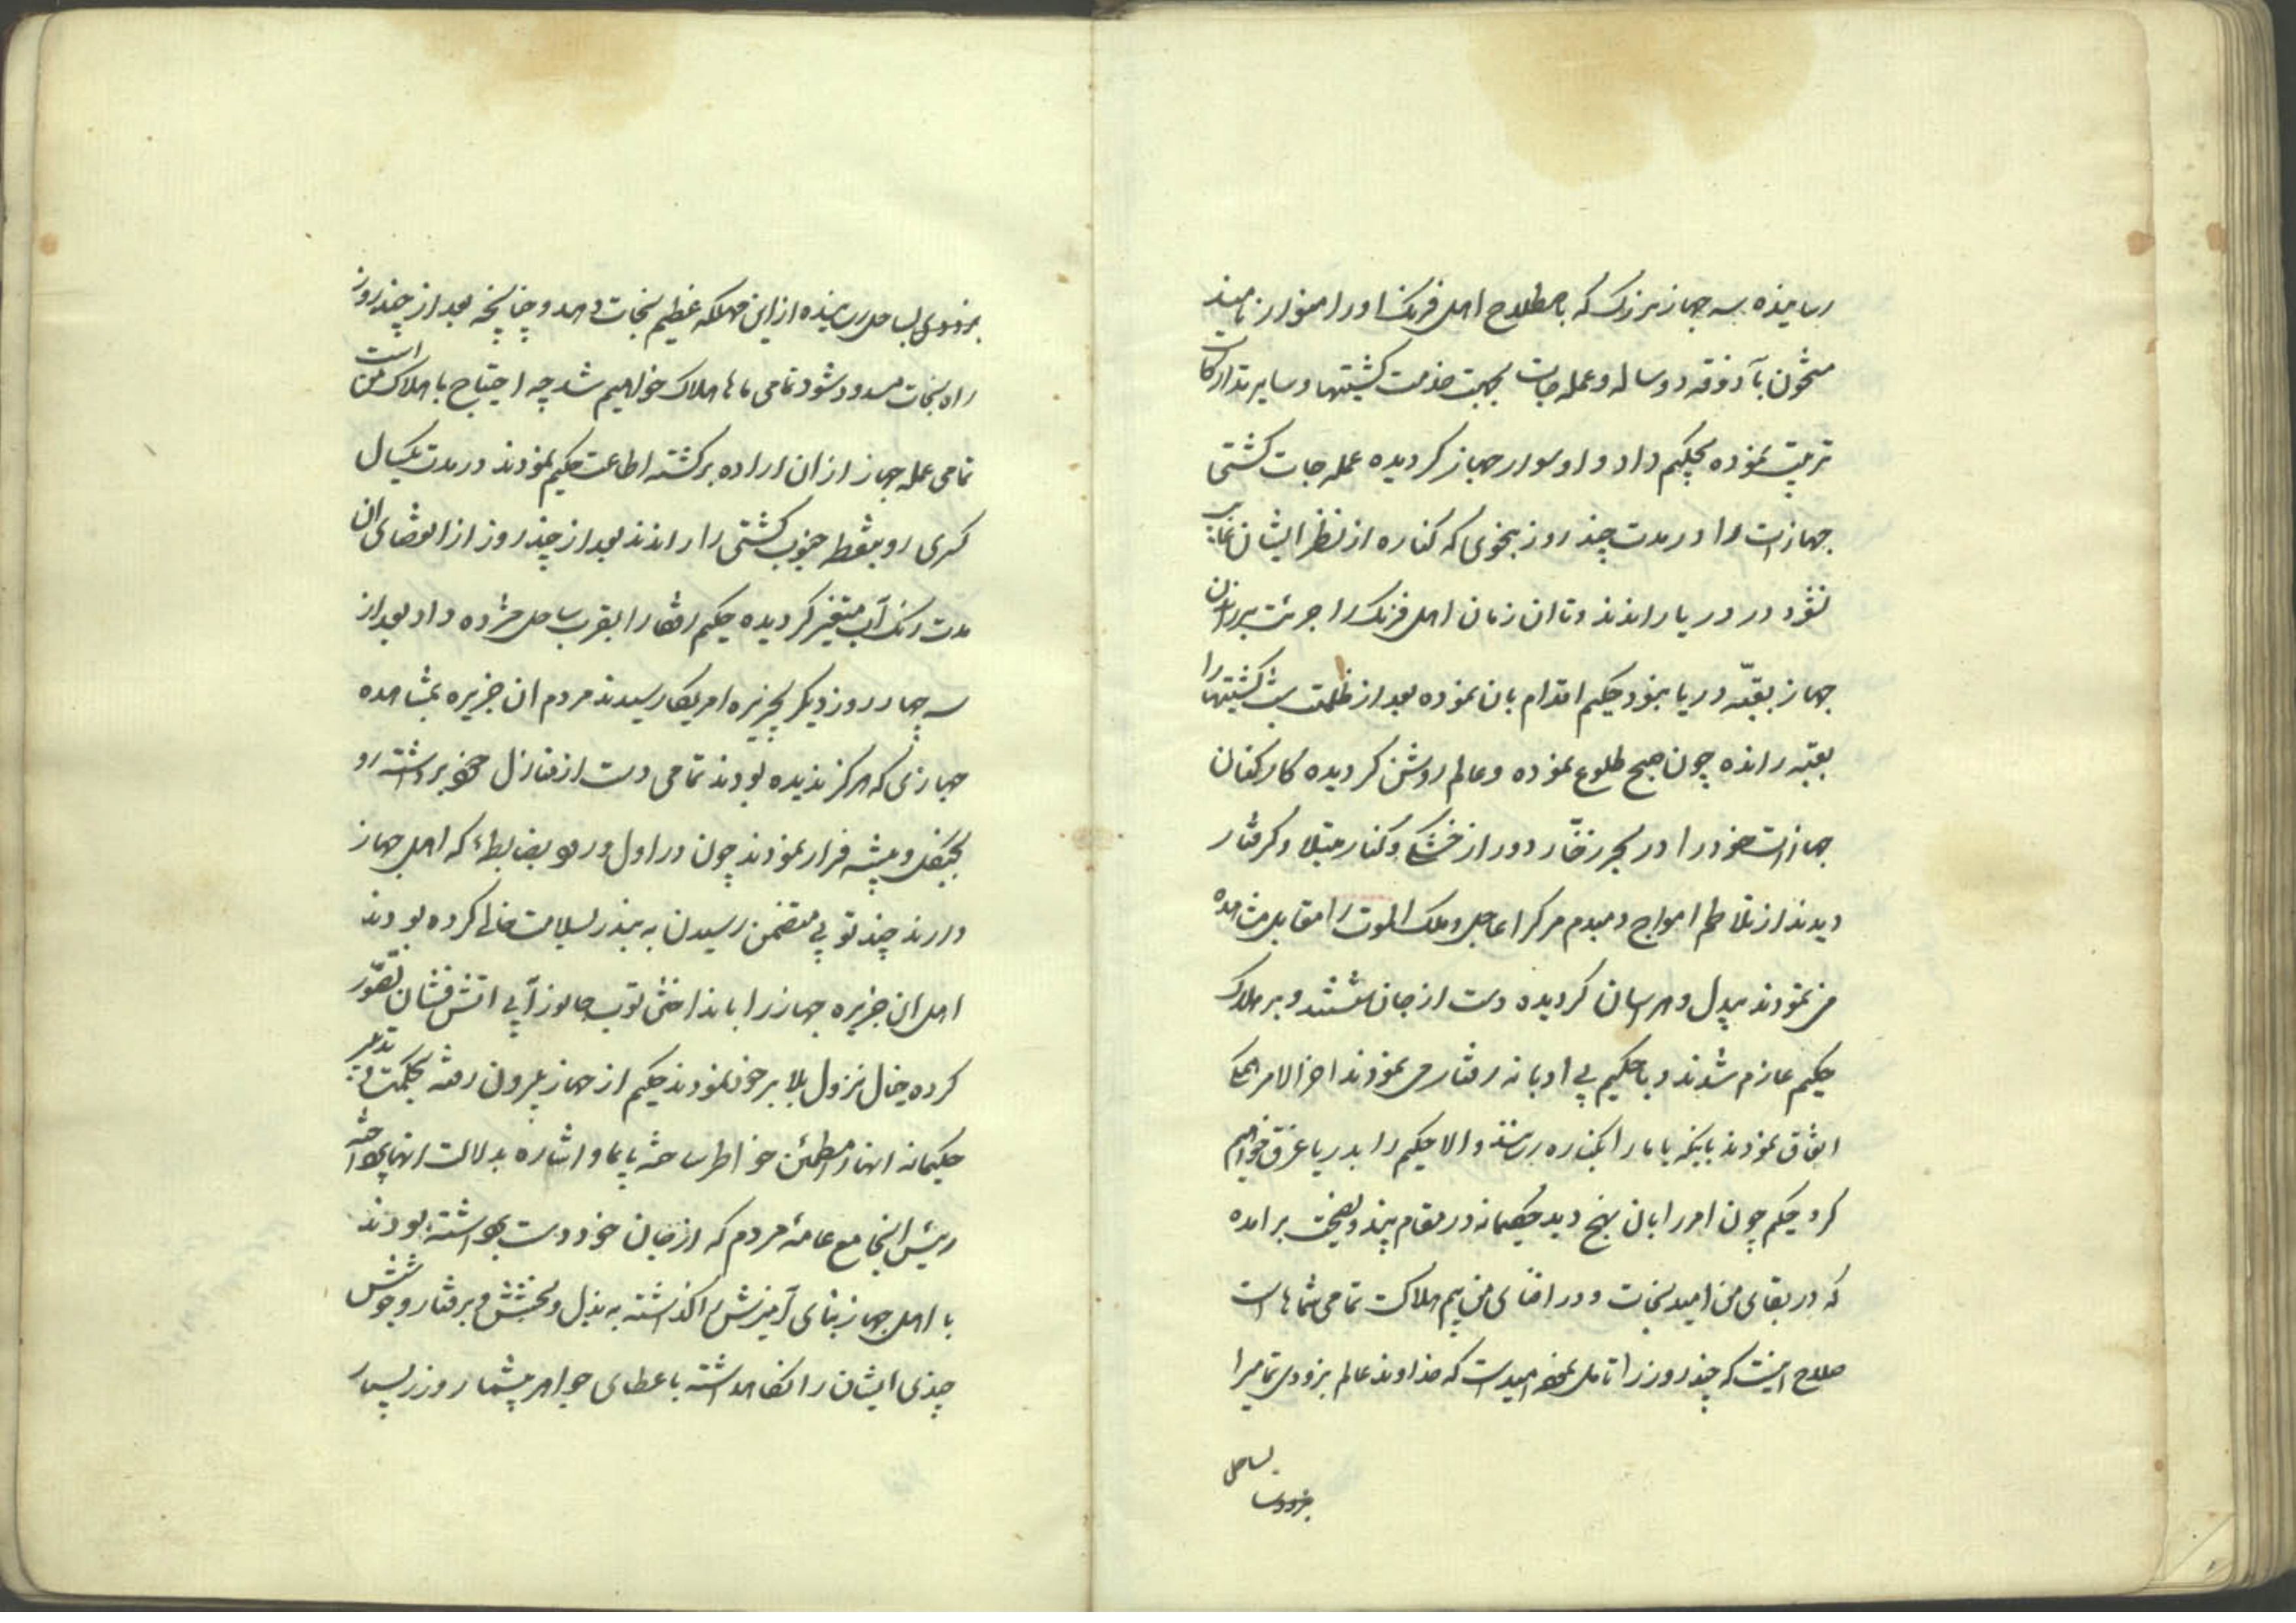 رسانیده سه جهاز بزرک که باصطلاح اهل فرنک اورا منوار نامیند
مشحون بآذوقه دو ساله و عمله جات بجهت خدمت کشتیها و سایر تدارکات
ترتیب نموده بحکیم داد و او سوار جهاز کردیده عمله جات کشتی
جهازات را در مدت چند روز بنحوی که کناره از نظر ایشان غایب
نشود در دریا راندند و تا ان زمان اهل فرنک را جرئت بر راندن
جهاز بقبّه دریا نبود حکیم اقدام بان نموده بعد از ظلمت شب کشتیها را
بقبّه رانده چون صبح طلوع نموده و عالم روشن کردیده کارکنان
جهازات خود را در بحر زخّار دور از خشکی و کنار مبتلا و کرفتار
دیدند از تلاطم امواج دمبدم مرک را عاجل و ملک الموت را مقابل مشاهده
می نمودند بیدل و هراسان کردیده دست از جان شستند و بر هلاک
حکیم عازم شدند و با حکیم بی ادبانه رفتار می نمودند اخر الامر همکی
اتفاق نمودند باینکه یا ما را بکناره رسانند و الا حکیم را بدریا غرق خواهیم
کرد حکیم چون امر را بان نهج دید حکیمانه در مقام پند و نصیحت برامده
که در بقای من امید نجات و در افنای من بیم هلاکت تمامی شماها است
صلاح اینست که چند روز را تامل نموده امید است که خداوند عالم بزودی تمامیرا
بساحل
بزودی بساحل رسانیده از این مهلکه عظیم نجات دهد و چنانچه بعد از چند روز
راه نجات مسدود شود تمامی ماها هلاک خواهیم شد چه احتیاج با هلاک من است
تمامی عمله جهاز از ان اراده برکشته اطاعت حکیم نمودند در مدت یکسال
کسری رو بنقطه جنوب کشتی را راندند بعد از چند روز از انقضای ان
مدت رنک آب متغیر کردیده حکیم رفقا را بقرب ساحل مژده داد بعد از
سه چهار روز دیکر بجزیره امریکا رسیدند مردم ان جزیره بمشاهده
جهازی که هرکز ندیده بودند تمامی دست از منازل خود برداشته رو
بجنکل و بیشه فرار نمودند چون در اول ورود بضابطهٔ که اهل جهاز
دارند چند توپی متضمن رسیدن به بندر بسلامت خالی کرده بودند
اهل ان جزیره جهاز را بانداختن توپ جانور آبی اتش فشان تصوّر
کرده خیال نزول بلا بر خود نمودند حکیم از جهاز بیرون رفته بحکمت و تدبیر
حکیمانه انها را مطمئن خواطر ساخته بایما و اشاره بدلالت انها پرداخته
رئیس انجا مع عامهٔ مردم که از جان خود دست برداشته بودند
با اهل جهاز بنای آمیزش را کذاشته به بذل و بخشش و برفتار و خوش
چندی ایشان را نکاهداشته باعطای جواهر بیشمار و زر بسیار